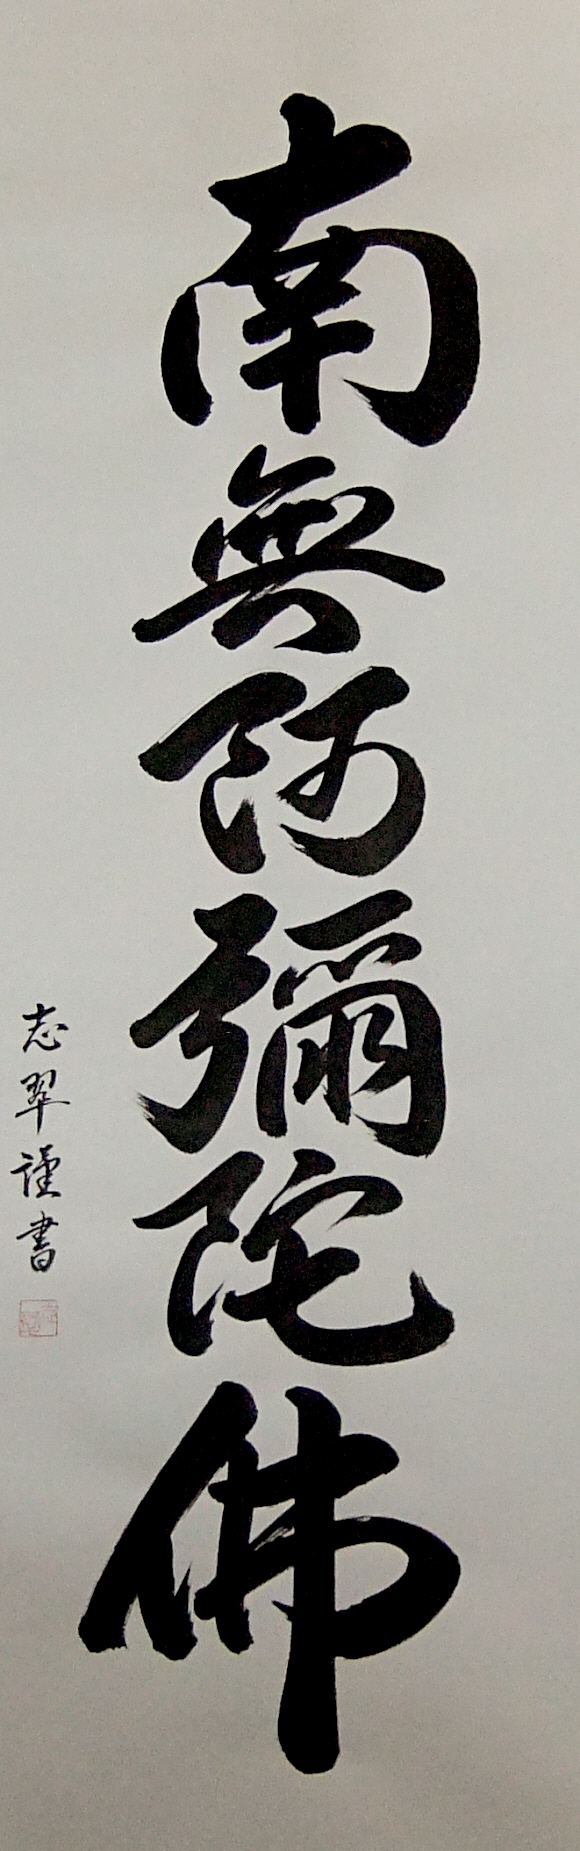 南無阿彌陀佛
志翠謹書